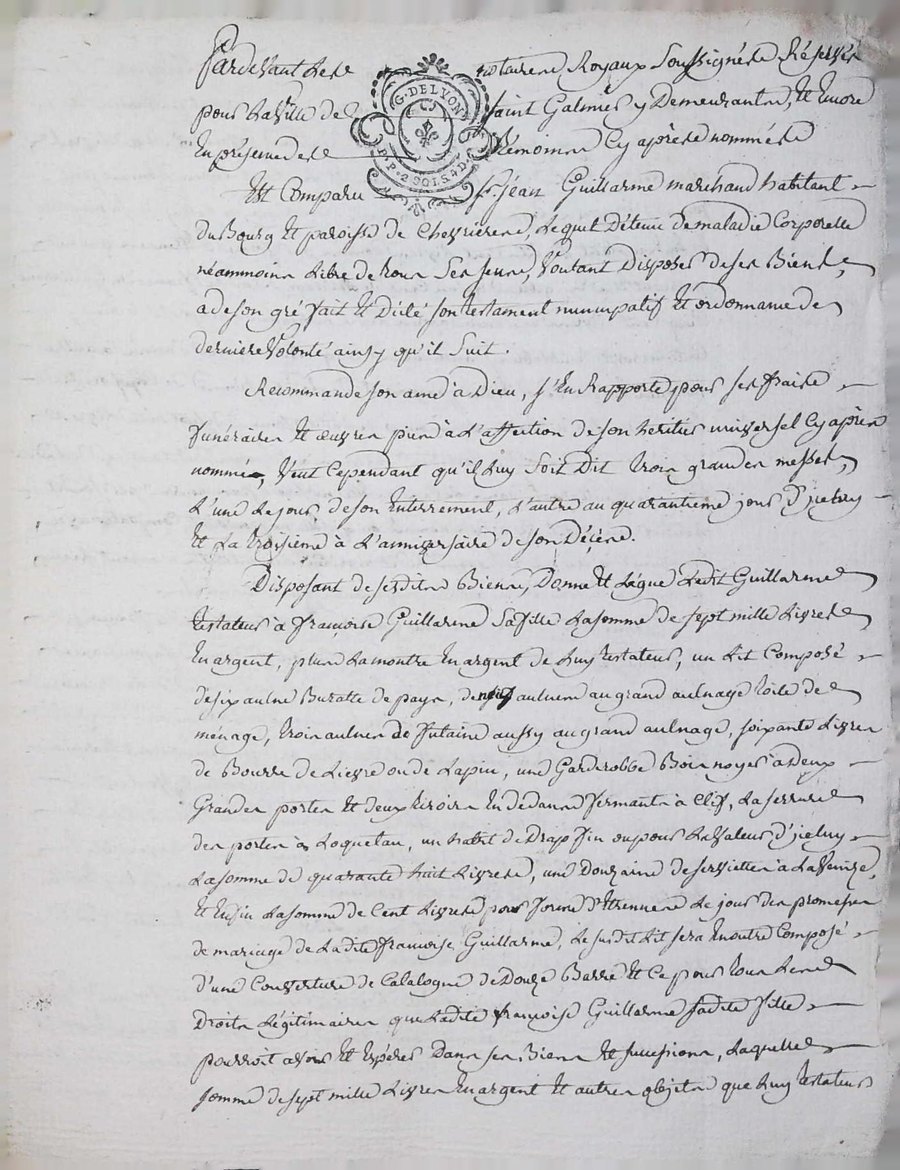 Pardevant les notaires Royaux Soussignés Réservés
G. DE LYON
P.P. 2 SOLS 4 D.
pour la Ville de Saint Galmier y Demeurants, Et Encore
En présence des témoins Cy après nommés
Est Comparu Sr. Jéan Guillarme marchand habitant
du Bourg Et paroisse de Chevrieres, Lequel Détenu de maladie Corporelle
néammoins Libre de tous Ses sens, Voulant Disposer de ses Biens,
a de son gré fait Et Dicté son testament nuncupatif Et ordonnance de
derniere Volonté ainsy qu'il Suit.
Recommande son ame à Dieu, s'En Rapporte pour ses fraix
funéraires Et œuvres pies à L'affection de son héritier universel Cy après
nommé, Veut Cependant qu'il Luy Soit Dit trois grandes messes,
L'une Le jour de son Enterrement, L'autre au quarantieme jour D'jceluy
Et La troisieme à L'anniversaire de son Décès.
Disposant de sesdits Biens, Donne Et Légue Ledit Guillarme
testateur à françoise Guillarme Sa fille La somme de sept mille Livres
En argent, plus La montre En argent de Luy testateur, un Lit Composé
de six aulnes Buratte de pays, de neuf aulnes au grand aulnage toile de
ménage, trois aulnes de futaine aussy au grand aulnage, soixante Livres
de Bourre de Lievre ou de Lapin, une Garderobbe Bois noyer à Deux
Grandes portes Et deux tiroirs En dedans fermants à Clef, La serrure
des portes à Loqueteau, un habit de Drap fin ou pour La Valeur D'jceluy
La somme de quarante huit Livres, une Douzaine de serviettes à La Venize,
Et Enfin La somme de Cent Livres pour forme D'Etrennes Le jour des promesses
de mariage de Ladite françoise Guillarme, Le susdit Lit sera Enoutre Composé
d'une Couverture de Catalogne de Douze Barres Et Ce pour tous Les
Droits Légitimaires que Ladite françoise Guillarme sadite fille
pourroit avoir Et Espérer Dans ses Biens Et successions, Laquelle
somme de sept mille Livres En argent Et autres objets que Luy testateur